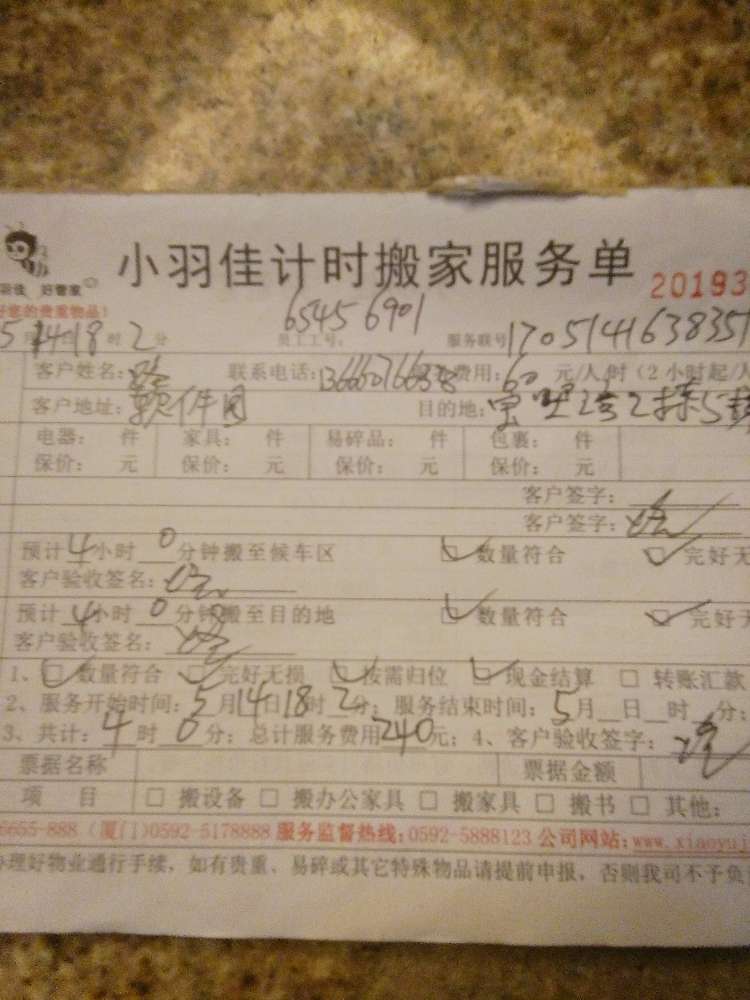 小羽佳计时搬家服务单
20193
好管家
好您的贵重物品!
5月14 18时2分 员工工号: 6545 6901 服务联号170514163835
客户姓名: 联系电话: 费用:60元/人/时(2小时起/人
客户地址:软件园 目的地:
电器: 件 家具: 件 易碎品: 件 包裹: 件
保价: 元 保价: 元 保价: 元 保价: 元
客户签字:
客户签字:
预计4小时0分钟搬至候车区 数量符合 完好无
客户验收签名:
预计4小时0分钟搬至目的地 数量符合 完好无
客户验收签名:
1、数量符合 完好无损 按需归位 现金结算 转账汇款
2、服务开始时间:5月14日18时2分;服务结束时间:5月 日 时 分;
3、共计:4时0分;总计服务费用240元;4、客户验收签字:
票据名称 票据金额
项 目 搬设备 搬办公家具 搬家具 搬书 其他:
5655-888 (厦门)0592-5178888 服务监督热线:0592-5888123 公司网站:www.xiaoyuj
办理好物业通行手续,如有贵重、易碎或其它特殊物品请提前申报,否则我司不予负